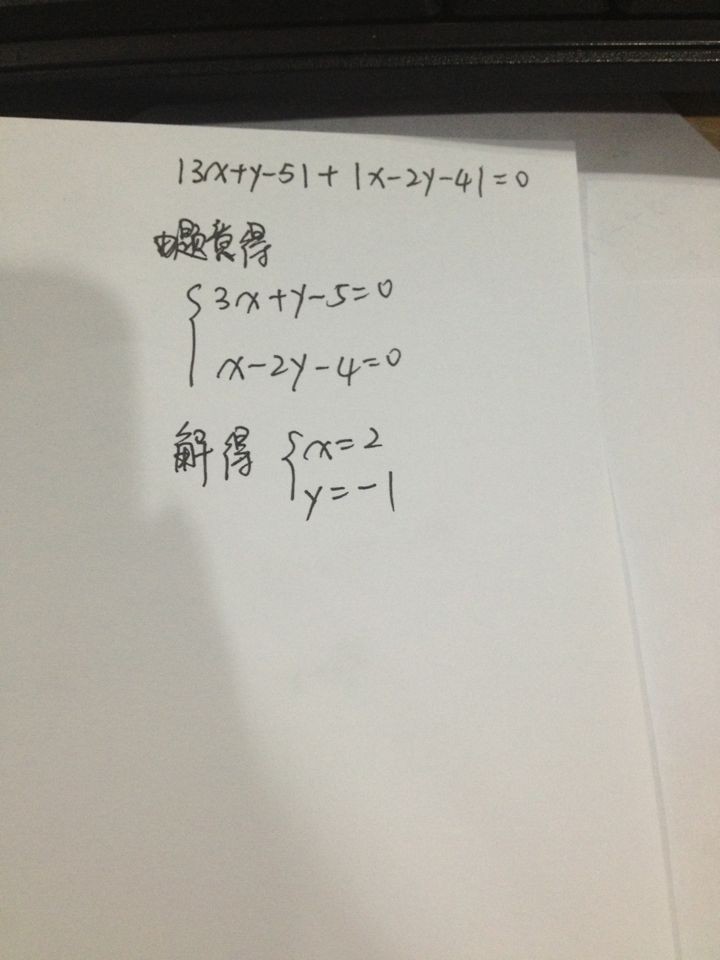 |3x+y-5|+|x-2y-4|=0
由题意得
{3x+y-5=0
x-2y-4=0
解得 {x=2
y=-1